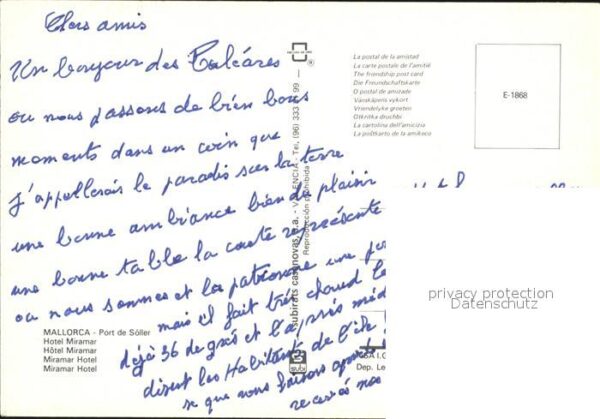 Chers amis
Un bonjour des Baléares
ou nous passons de bien bons
moments dans un coin que
j'appellerais le paradis sur la terre
une bonne ambiance bien du plaisir
une bonne table la carte représente
ou nous sommes et la patronne une
mais il fait très chaud
déjà 36 degrés et l'après
disent les Habitants de l'ile
se que nous faisons
recevés nos
MALLORCA - Port de Sóller
Hotel Miramar
Hôtel Miramar
Miramar Hotel
Miramar Hotel
subirats casanovas, s.a. - VALENCIA - Tel. (96) 333 99
Reproducción prohibida
La postal de la amistad
La carte postale de l'amitié
The friendship post card
Die Freundschaftskarte
O postal de amizade
Vänskapens vykort
Vriendelyke groeten
Otkritka druchbi
La cartolina dell'amicizia
La poŝtkarto de la amikeco
E-1868
Dep. Le
privacy protection
Datenschutz